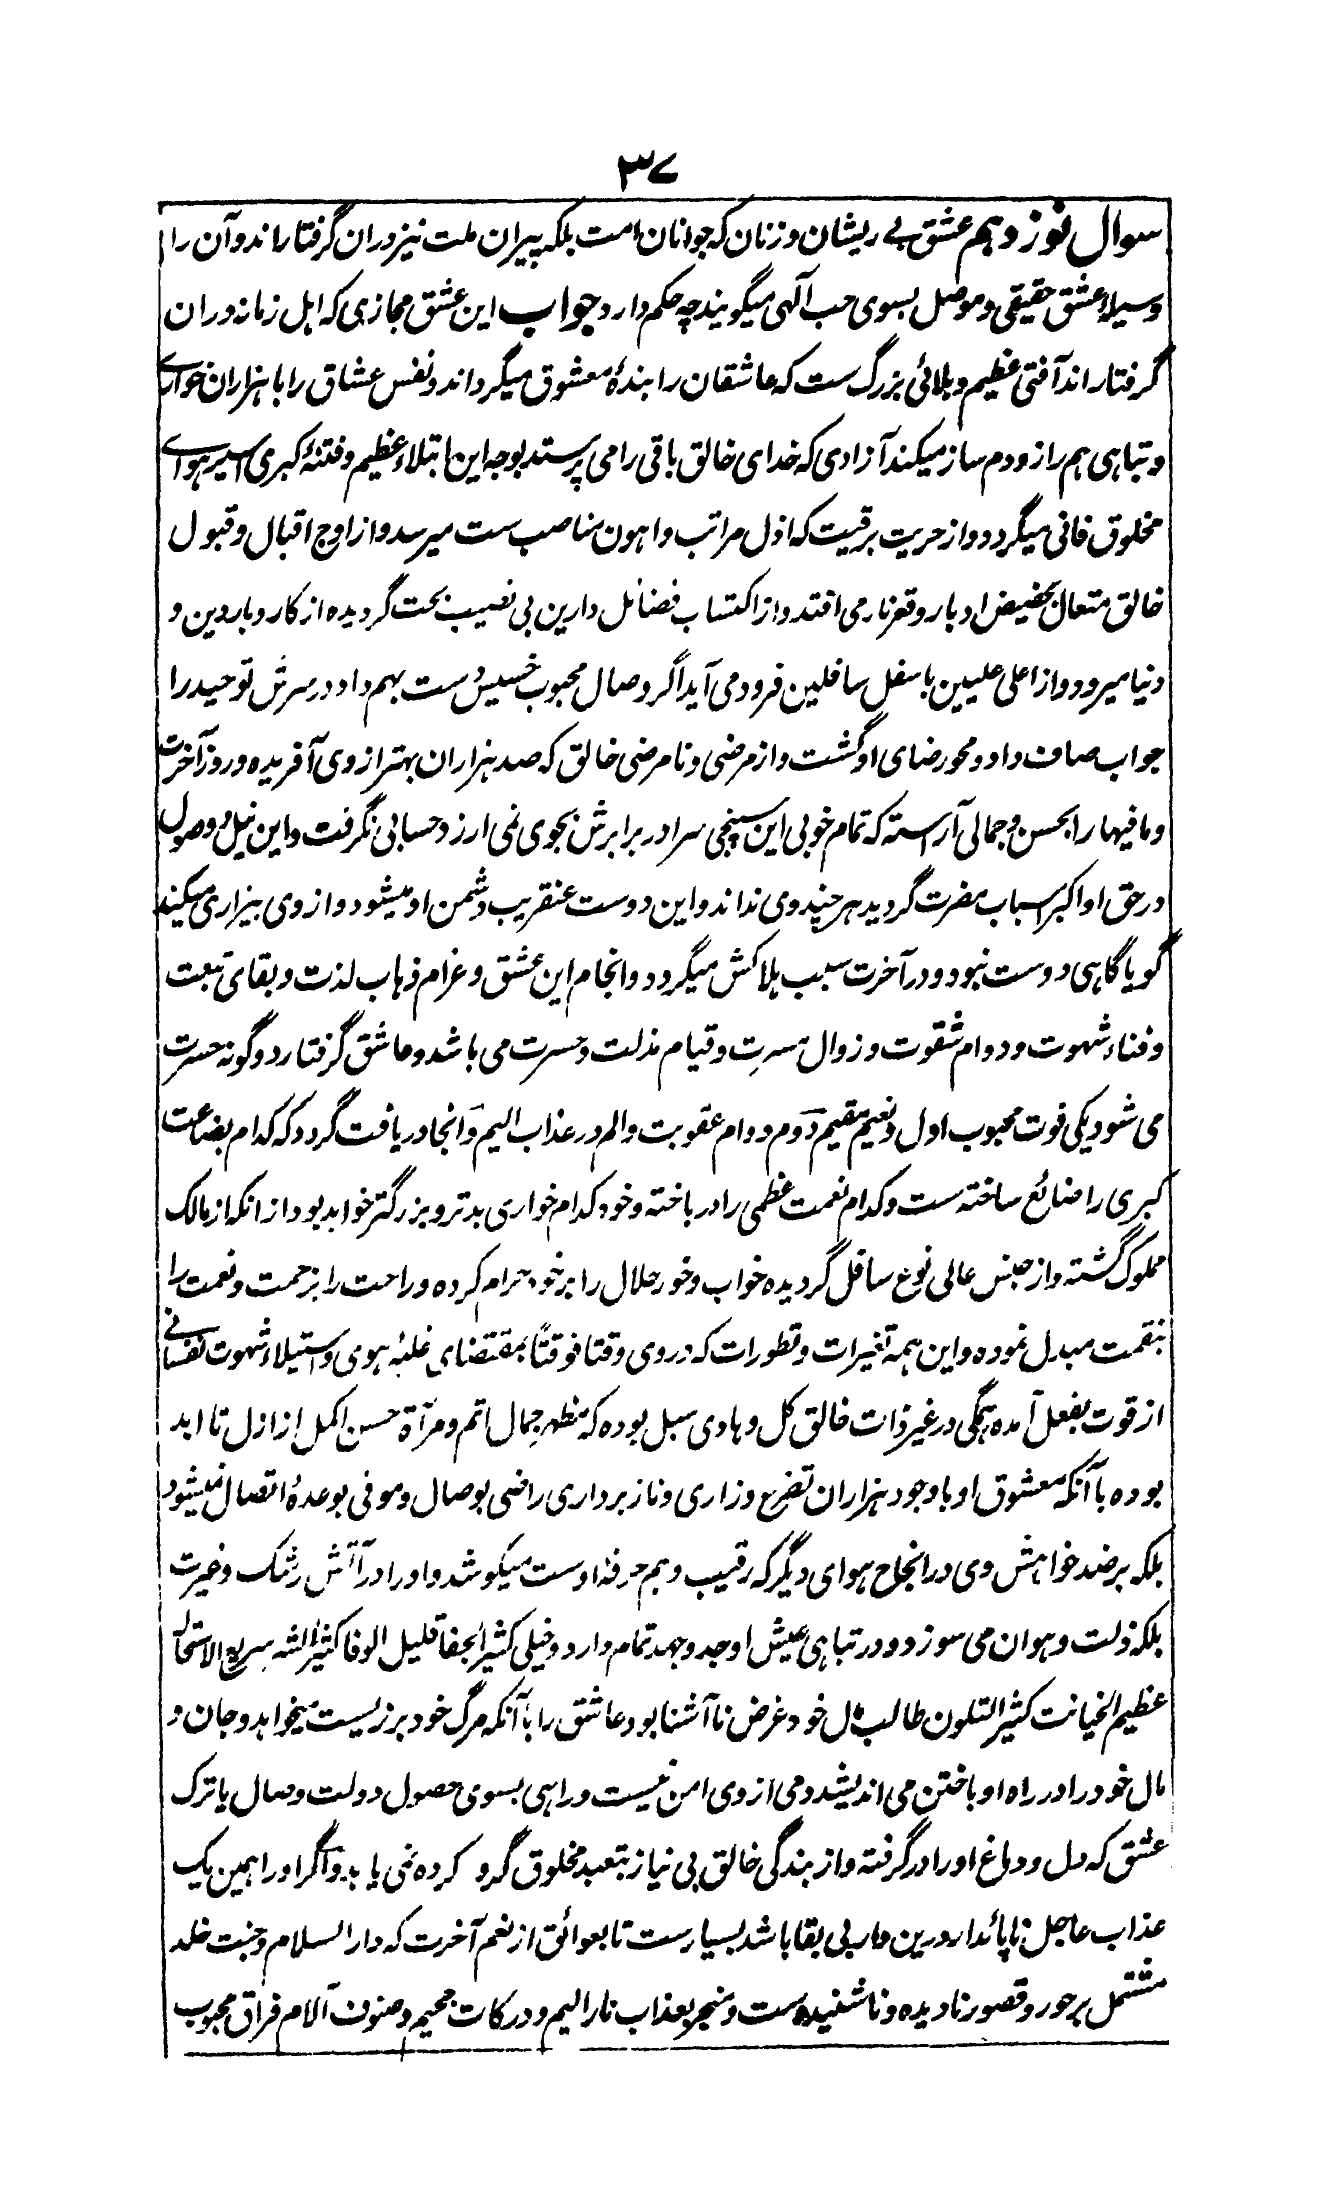 ۳۷
سوال نوزدهم عشق بے ریشان و زنان که جوانان امت بلکه پیران ملت نیز دران گرفتار اند و آن را
وسیلۀ عشق حقیقی و موصل بسوی حب آلهی میگویند چه حکم دارد جواب این عشق مجازی که اہل زمانه دران
گرفتار اند آفتی عظیم و بلائی بزرگ ست که عاشقان را بندۀ معشوق میگرداند و نفس عشاق را با ہزاران خواری
و تباہی ہم راز و دم ساز میکند آزادی که خدای خالق باقی را می پرستد بوجہ این ابتلاء عظیم و فتنۀ کبری اسیر ہواے
مخلوق فانی میگردد و از حریت برقیت که اذل مراتب و اہون مناصب ست میرسد و از اوج اقبال و قبول
خالق متعال بحضیض ادبار و قعر نار می افتد و از اکتساب فضائل دارین بی نصیب بحت گردیده از کار و بار دین و
دنیا میرود و از اعلی علیین باسفل سافلین فرود می آید اگر وصال محبوب خسیس دست بهم داد در سرش توحید را
جواب صاف داد و محو رضای او گشت و از مرضی و نامرضی خالق که صد ہزاران بهتر از وی آفریده و روز آخرت
و ما فیها را بحسن و جمالی آراسته که تمام خوبی این سپنجی سرا در برابرش بجوی نمی ارزد حسابی نگرفت و این نیل و وصول
در حق او اکبر اسباب مضرت گردید ہر چند وی نداند و این دوست عنقریب دشمن او میشود و از وی بیزاری میکند
گویا گاہی دوست نبود و در آخرت سبب ہلاکش میگردد و انجام این عشق و غرام ذہاب لذت و بقای تبعت
و فناء شہوت و دوام شقوت و زوال مسرت و قیام مذلت و حسرت می باشد و عاشق گرفتار دو گونه حسرت
می شود یکی فوت محبوب اول و نعیم مقیم دوم دوام عقوبت و الم در عذاب الیم و آنجا دریافت گردد که کدام بضاعت
کبری را ضائع ساخته ست و کدام نعمت عظمی را در باخته و خود کدام خواری بدتر و بزرگتر خواہد بود از انکه از مالک
مملوک گشته و از جنس عالی نوع سافل گردیده خواب و خور حلال را بر خود حرام کرده و راحت را بزحمت و نعمت را
بنقمت مبدل نموده و این ہمه تغیرات و تطورات که در وی وقتا فوقتًا بمقتضای غلبۀ ہوی و استیلاء شہوت نفسانے
از قوت بفعل آمده ہمگی در غیر ذات خالق کل و ہادی سبل بوده که مظہر جمال اتم و مرآة حسن اکمل از ازل تا ابد
بوده با آنکه معشوق او با وجود ہزاران تضرع و زاری و ناز برداری راضی بوصال و موفی بوعدۀ اتصال نمیشود
بلکه بر ضد خواہش وی در انجاح ہوای دیگر که رقیب و ہم حرفۀ اوست میکوشد و او را در آتش رشک و غیرت
بلکه ذلت و ہوان می سوزد و در تباہی عیش او جد و جہد تمام دارد و خیلی کثیر الجفا قلیل الوفا سریع الاستحاله
عظیم الخیانت کثیر التلون طالب مال خود غرض ناآشنا بود عاشق را با آنکه مرگ خود بر زیست میخواہد و جان و
مال خود را در راه او باختن می اندیشد دمی از وی امن نیست و راہی بسوی حصول دولت وصال یا ترک
عشق که دل و دماغ او را در گرفته و از بندگی خالق بی نیاز بتعبد مخلوق گرو کرده نمی یابد و اگر او را ہمین یک
عذاب عاجل ناپائدار درین دار بی بقا باشد بسیار ست تا بعوائق از نعم آخرت که دار السلام و جنت خلد
مشتمل بر حور و قصور نادیده و ناشنیده ست و منجر بعذاب نار الیم و درکات جحیم و صنوف آلام فراق محبوب